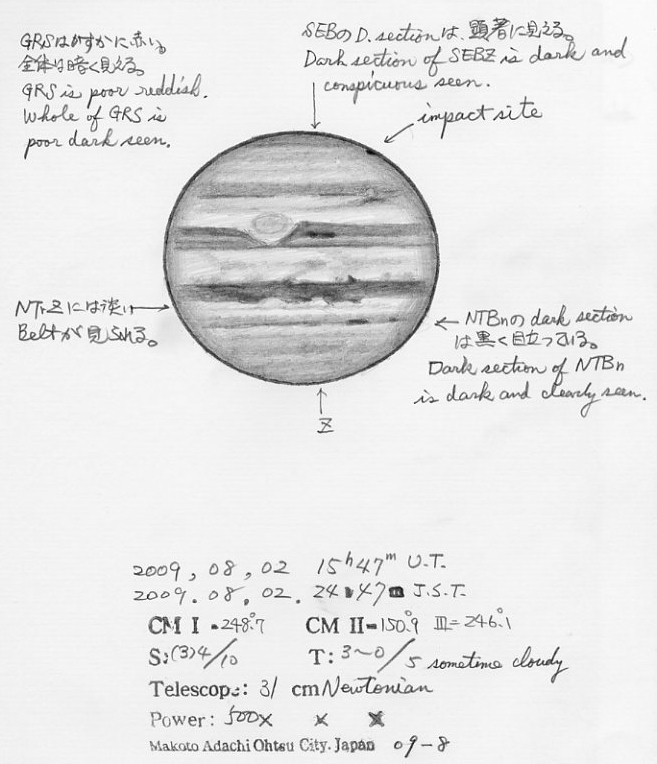 GRSはかすかに赤い。
全体は暗く見える。
GRS is poor reddish.
Whole of GRS is
poor dark seen.
SEBのD. sectionは、顕著に見える。
Dark section of SEBZ is dark and
conspicuous seen.
impact site
NTrZには淡い
Beltが見られる。
NTBnのdark section
は黒く目立っている。
Dark section of NTBn
is dark and clearly seen.
Z
2009, 08, 02 15h47m U.T.
2009. 08, 02. 24 47m J.S.T.
CM I = 248.°7 CM II = 150.°9 III = 246.°1
S: (3)4/10 T: 3~0/5 sometime cloudy
Telescope: 31 cm Newtonian
Power: 500× × ×
Makoto Adachi Ohtsu City. Japan 09-8